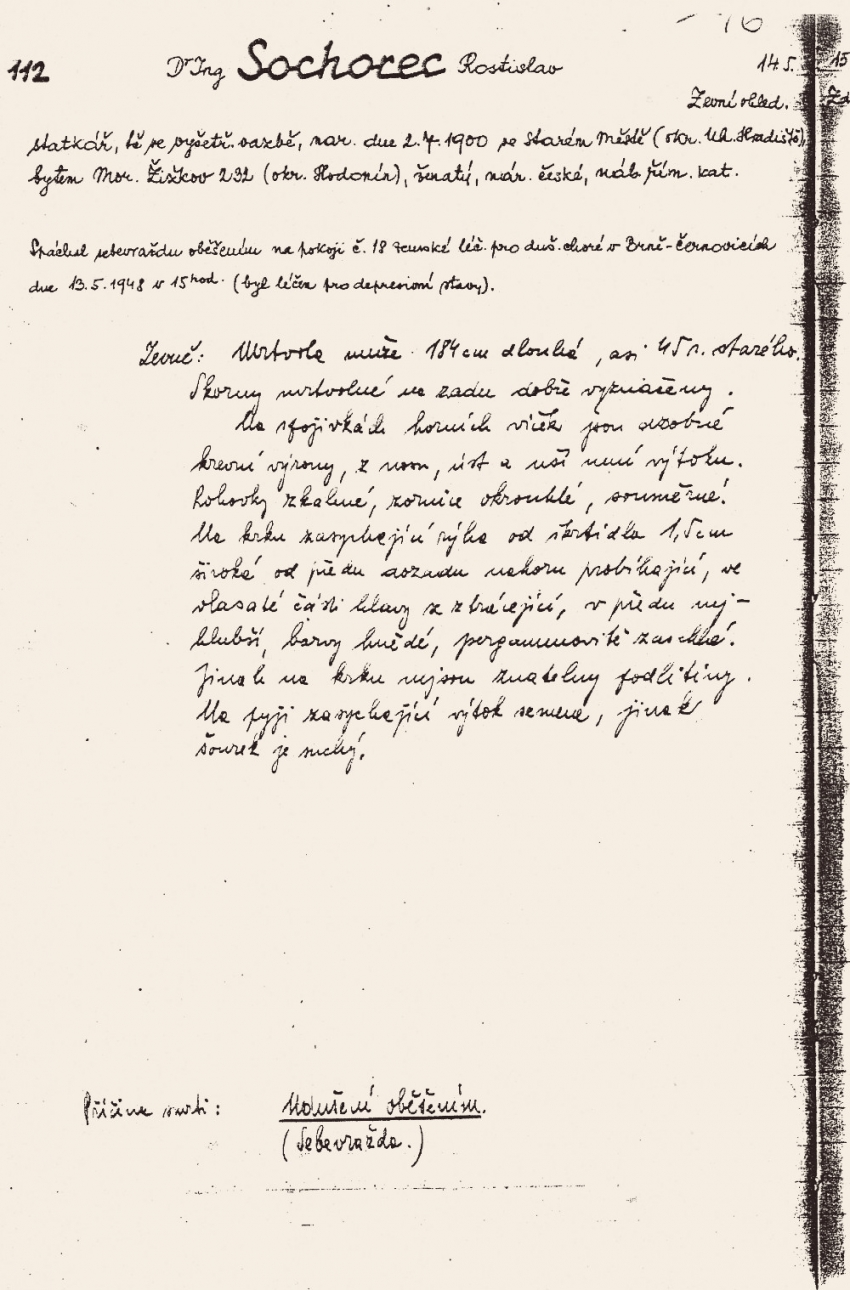 16
112 Dr Ing Sochorec Rostislav 14.5. 15
Zevní ohled. Zd
statkář, tč. ve vyšetř. vazbě, nar. dne 2.7.1900 ve Starém Městě (okr. Uh. Hradiště)
bytem Mor. Žižkov 232 (okr. Hodonín), ženatý, nár. české, náb. řím. kat.
Spáchal sebevraždu oběšením na pokoji č. 18 zemské léč. pro duš. choré v Brně-Černovicích
dne 13.5.1948 v 15 hod. (byl léčen pro depresioní stavy).
Zevně: Mrtvola muže 184 cm dlouhá, asi 45 r. starého.
Skvrny mrtvolné na zadu dobře vyznačeny.
Na spojivkách horních víček jsou drobné
krevní výrony, z nosu, úst a uší není výtoku.
Rohovky zkalné, zornice okrouhlé, souměrné.
Na krku zasychající rýha od škrtidla 1,5 cm
široká od předu dozadu nahoru probíhající, ve
vlasaté části hlavy se ztrácející, v předu nej-
hlubší, barvy hnědé, pergamenovitě zaschlá.
Jinak na krku nejsou znatelny podlitiny.
Na pyji zasychající výtok semene, jinak
šourek je suchý.
Příčina smrti: Udušení oběšením.
(Sebevražda.)